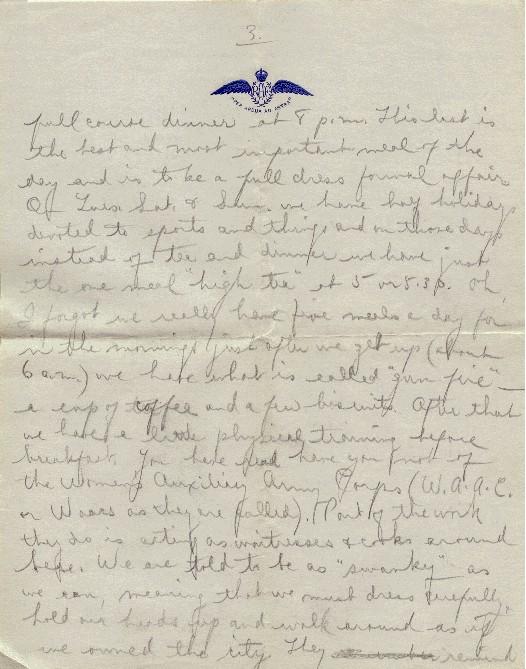 3.
PER ARDUA AD ASTRA
full course dinner at 8 p.m. This last is
the best and most important meal of the
day and is to be a full dress formal affair.
Of Tues. Sat. & Sun. we have half holidays
devoted to sports and things and on those days
instead of tea and dinner we have just
the one meal "high tea" at 5 or 5.30. Oh,
I forgot we really have five meals a day for
in the mornings just after we get up (about
6 a.m.) we have what is called "gun fire" —
a cup of coffee and a few biscuits. After that
we have a little physical training before
breakfast. You have read have you not of
the Women's Auxiliary Army Corps (W.A.A.C.
or Waacs as they are called). Part of the work
they do is acting as waitresses & cooks around
here. We are told to be as "swanky" as
we can, meaning that we must dress carefully,
hold our heads up and walk around as if
we owned the city. They remind